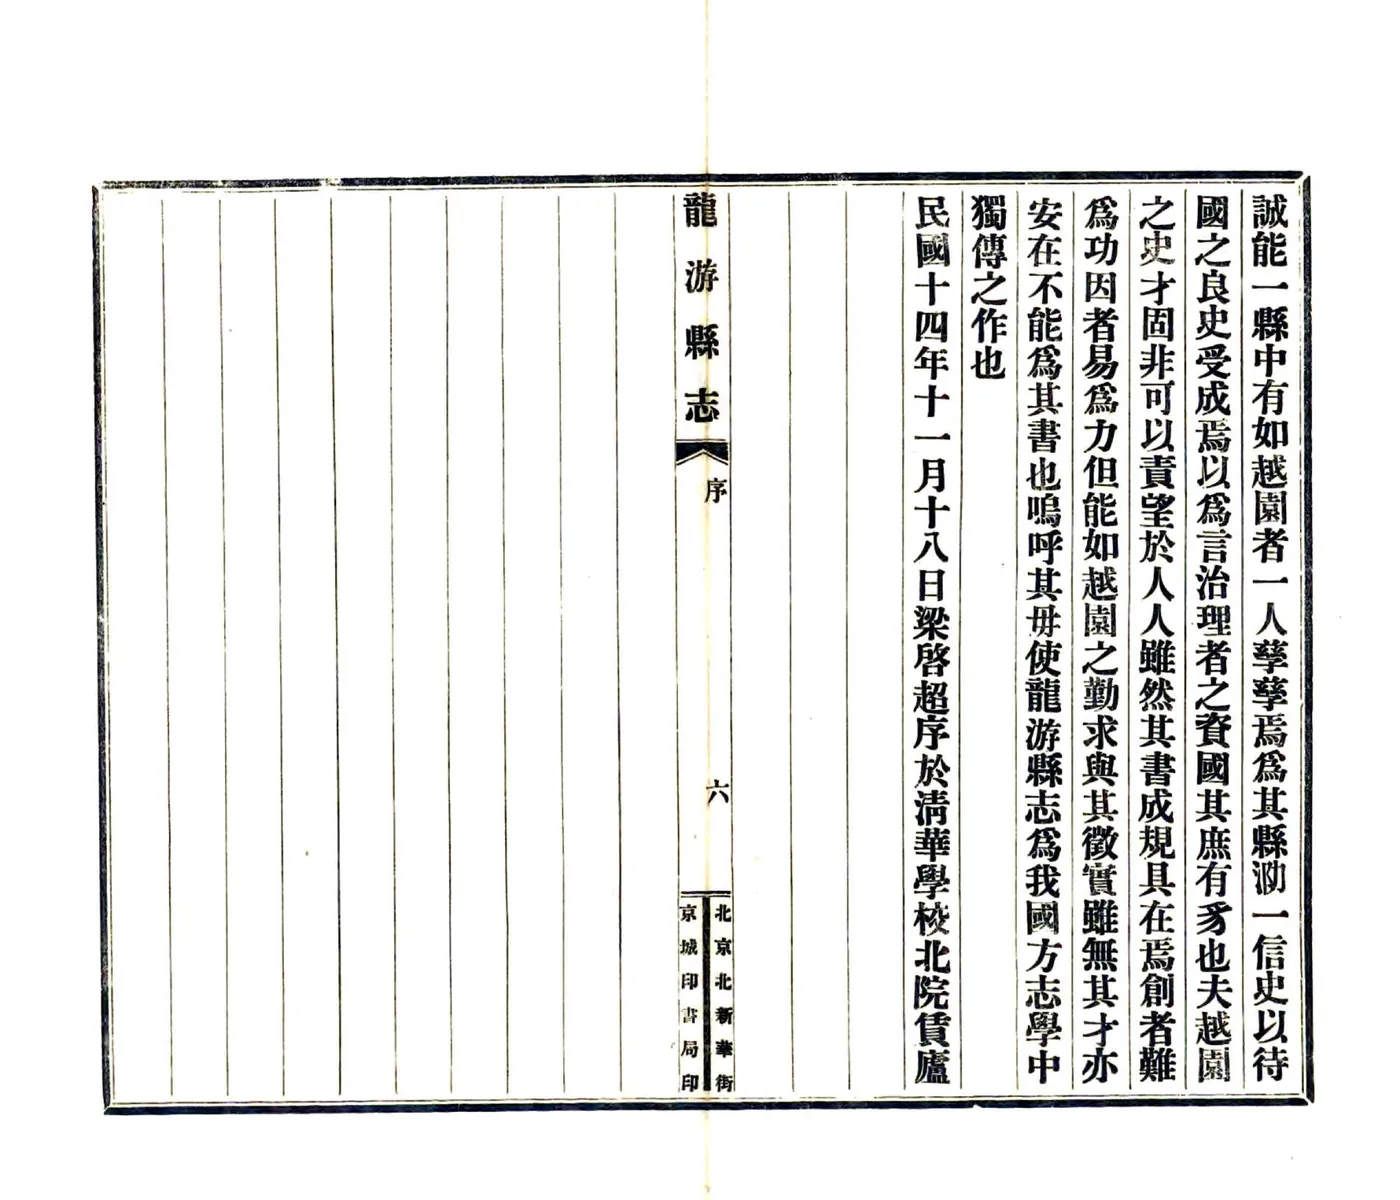 誠能一縣中有如越園者一人孳孳焉爲其縣泐一信史以待
國之良史受成焉以爲言治理者之資國其庶有豸也夫越園
之史才固非可以責望於人人雖然其書成規具在焉創者難
爲功因者易爲力但能如越園之勤求與其徵實雖無其才亦
安在不能爲其書也嗚呼其毋使龍游縣志爲我國方志學中
獨傳之作也
民國十四年十一月十八日梁啓超序於淸華學校北院賃廬
龍游縣志
序
六
北京北新華街
京城印書局印